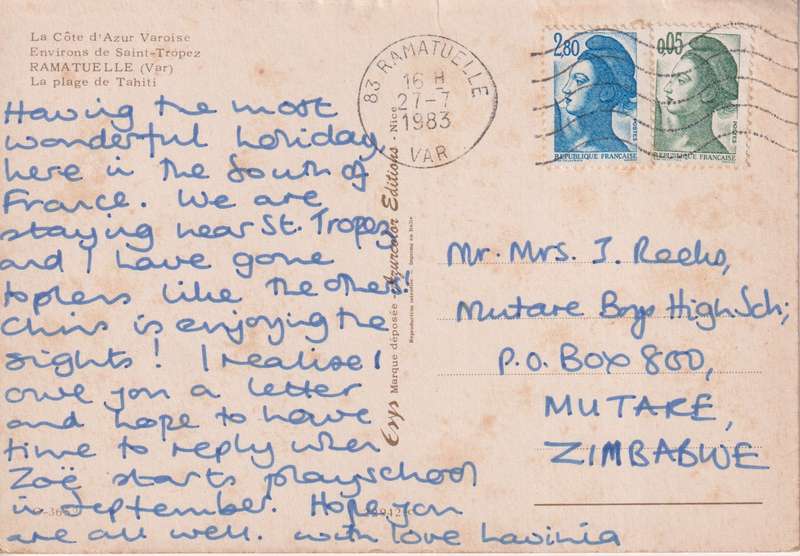 La Côte d'Azur Varoise
Environs de Saint-Tropez
RAMATUELLE (Var)
La plage de Tahiti
Having the most
wonderful holiday
here in the South of
France. We are
staying near St. Tropez
and I have gone
topless like the others.
Chris is enjoying the
sights! I realise I
owe you a letter
and hope to have
time to reply when
Zoë starts playschool
in September. Hope you
are all well. with love Lavinia
83 RAMATUELLE
16 H
27-7
1983
VAR
2,80
POSTES
REPUBLIQUE FRANÇAISE
0,05
POSTES
REPUBLIQUE FRANÇAISE
Erys Marque déposée - Azurcolor Editions - Nice
Reproduction interdite Imprimé en Italie
Mr. Mrs. J. Reeks,
Mutare Boys High Sch;
P.O. Box 800,
MUTARE,
ZIMBABWE